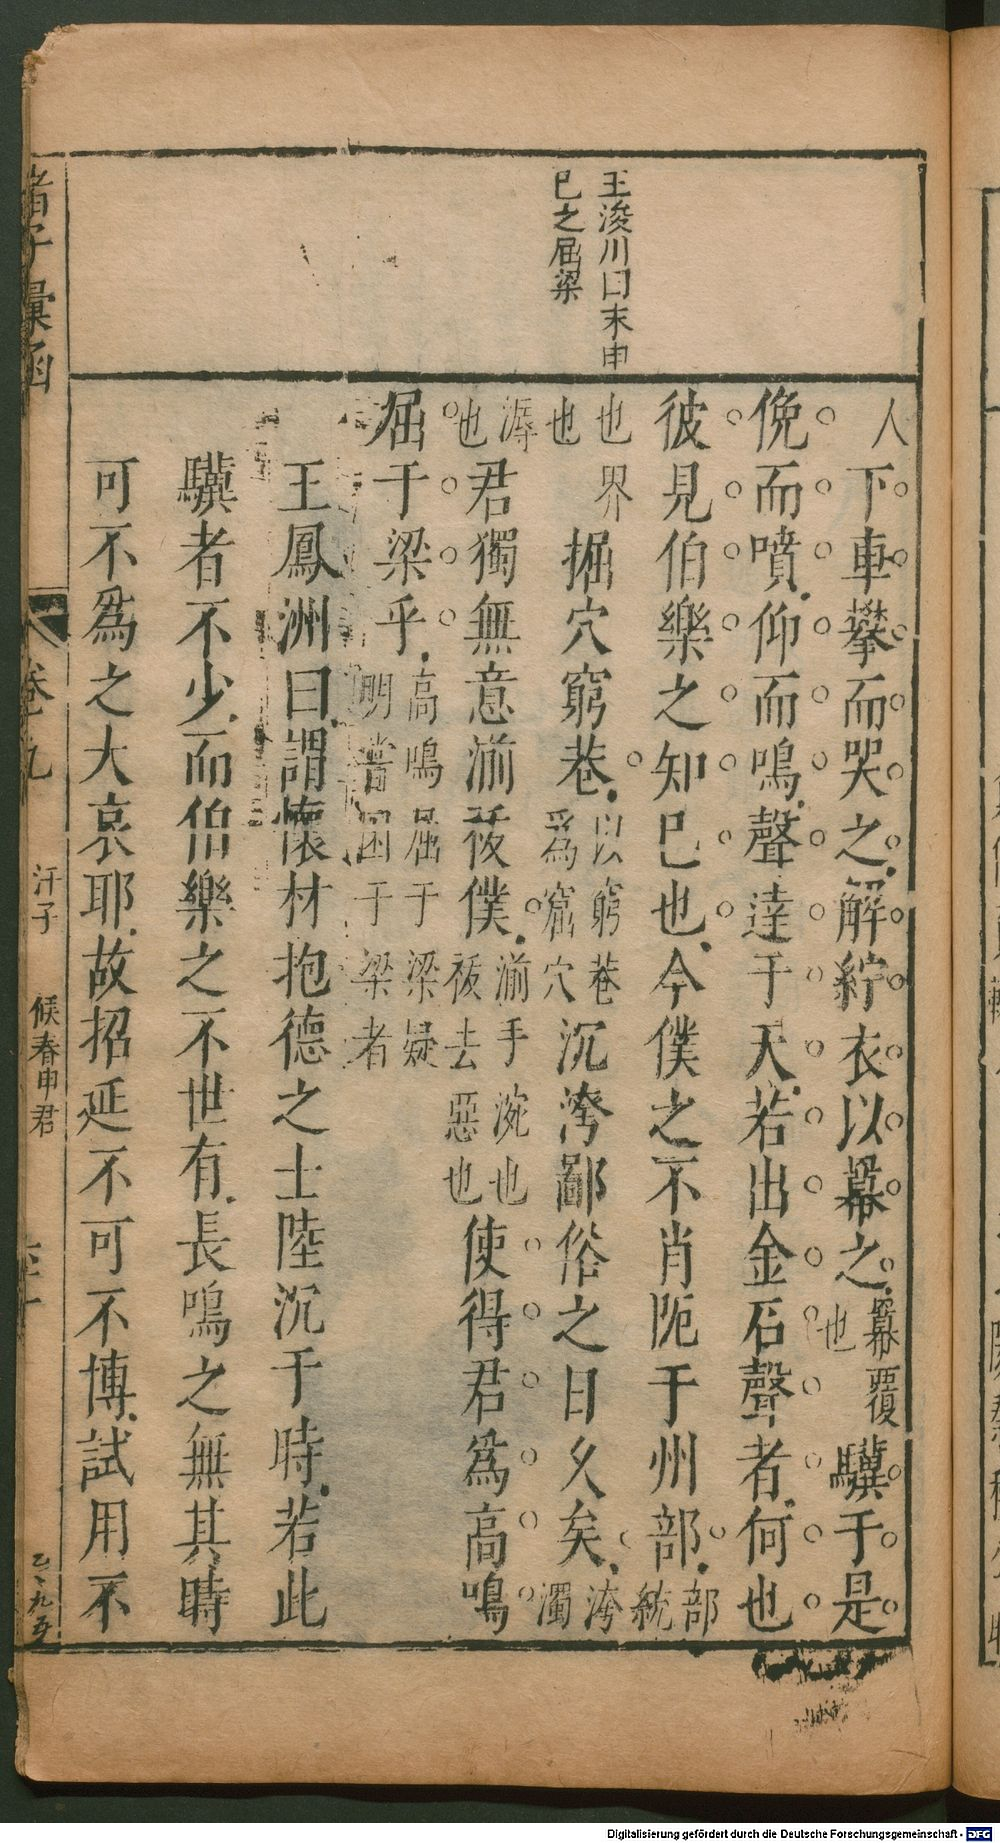 王浚川曰末申
巳之屈梁
人下車攀而哭之解紵衣以羃之羃覆也驥于是
俛而噴仰而鳴聲達于天若出金石聲者何也
彼見伯樂之知巳也今僕之不肖阨于州部部統
也界也掘穴窮巷以窮巷爲窟穴沉洿鄙俗之日久矣洿濁
溽也君獨無意湔祓僕湔手浣也祓去惡也使得君爲高鳴
屈于梁乎高鳴屈于梁疑明嘗困于梁者
王鳳洲曰謂懷材抱德之士陸沉于時若此
驥者不少而伯樂之不世有長鳴之無其時
可不爲之大哀耶故招延不可不博試用不
諸子彙函
卷十九
汗子
候春申君
Digitalisierung gefördert durch die Deutsche Forschungsgemeinschaft - DFG